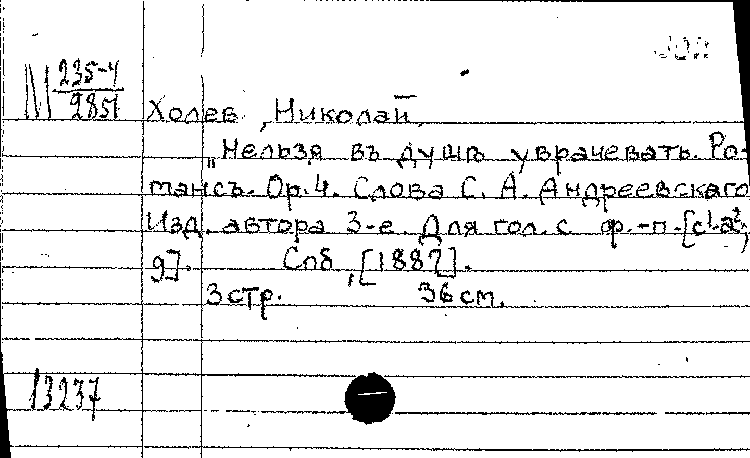 М 235-4
2851
Холев, Николай.
„Нельзя въ душѣ уврачевать. Ро-
мансъ. Ор. 4. Слова С. А. Андреевскаго
Изд. автора 3-е. Для гол. с ф.-п. [c¹-a²,
9].
Спб, [1887].
3 стр. 36 см.
13237